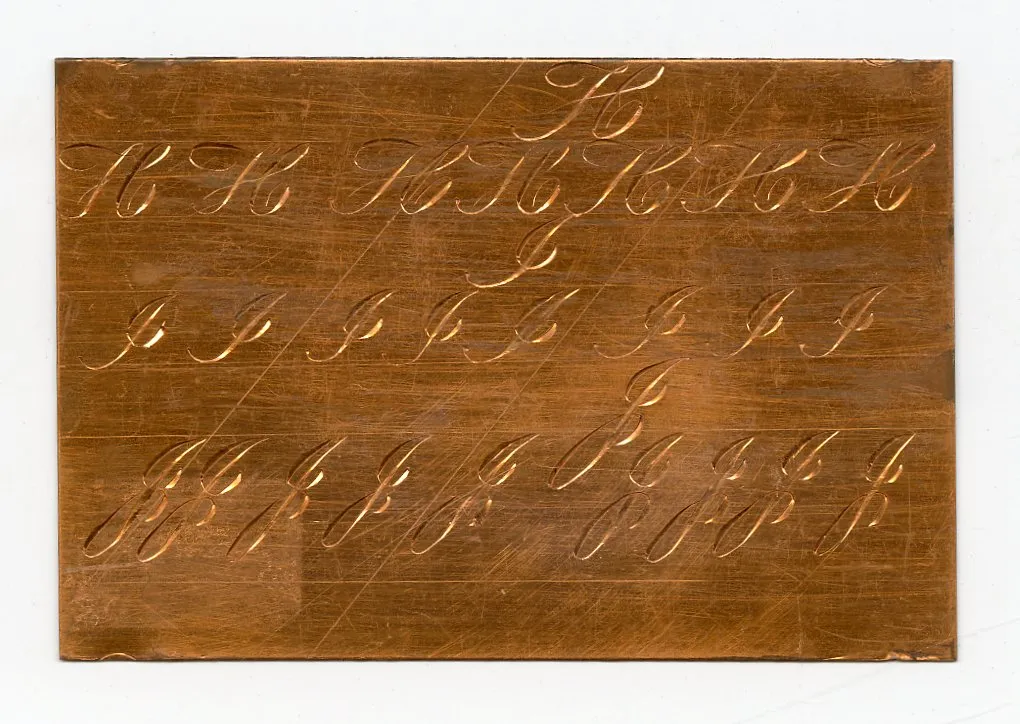 H
H H H H H H H
I
I I I I I I I I
J
J J J J J J J J J